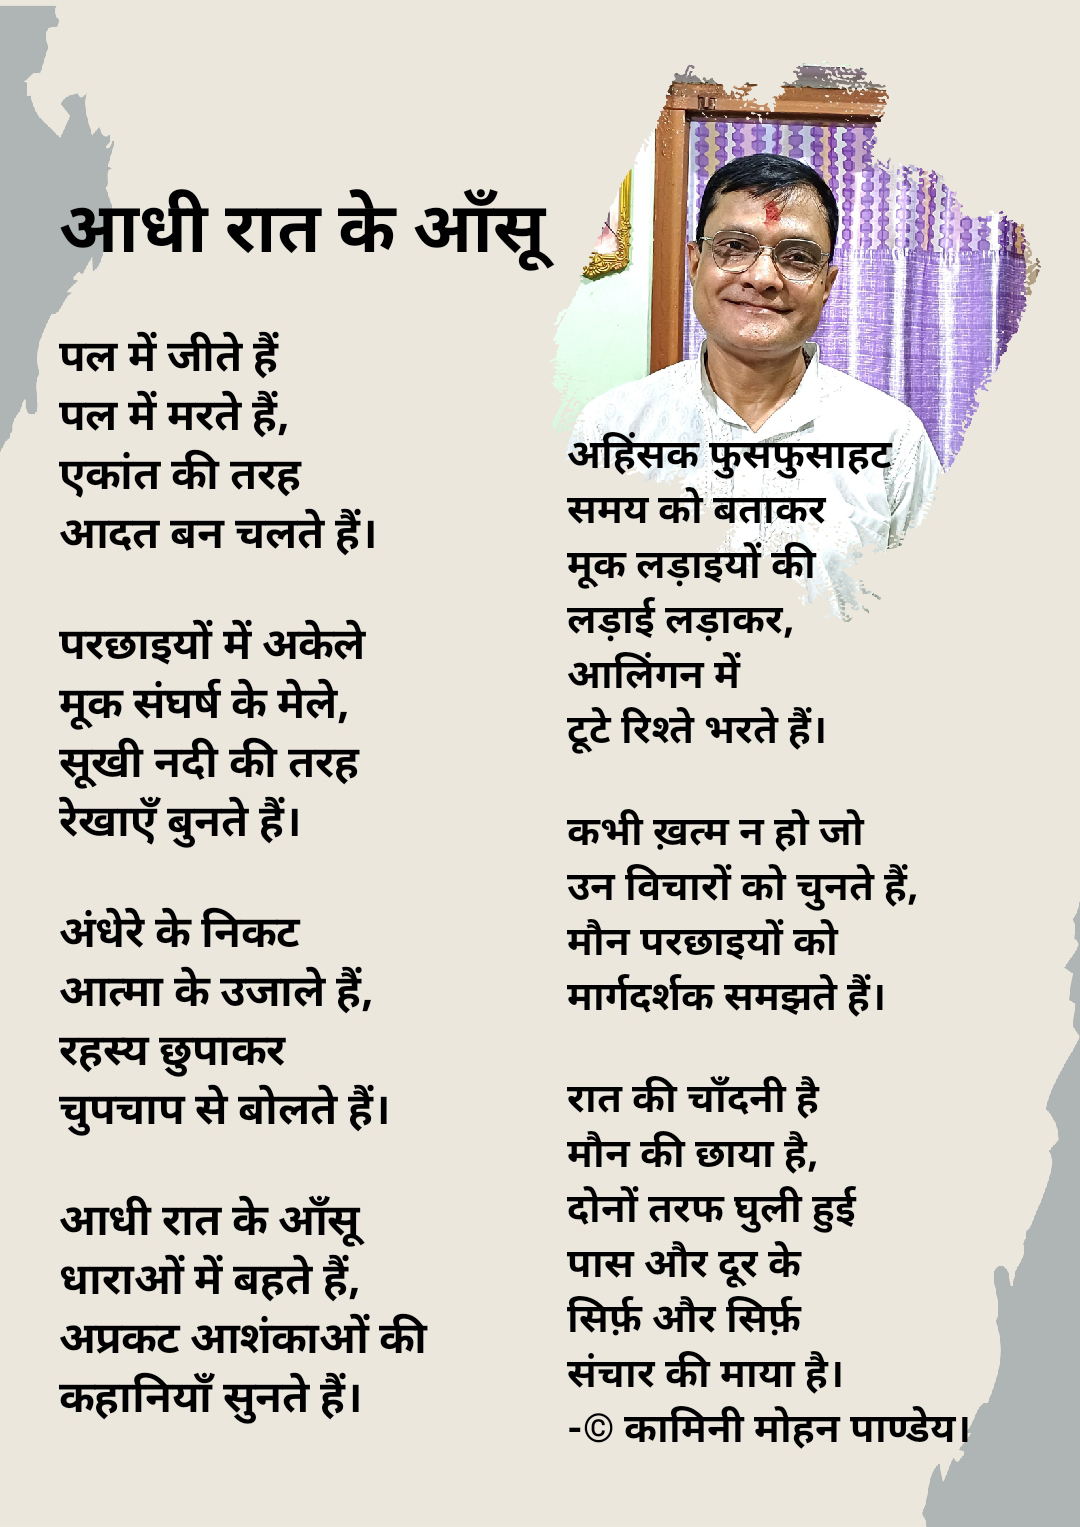 आधी रात के आँसू
पल में जीते हैं
पल में मरते हैं,
एकांत की तरह
आदत बन चलते हैं।
परछाइयों में अकेले
मूक संघर्ष के मेले,
सूखी नदी की तरह
रेखाएँ बुनते हैं।
अंधेरे के निकट
आत्मा के उजाले हैं,
रहस्य छुपाकर
चुपचाप से बोलते हैं।
आधी रात के आँसू
धाराओं में बहते हैं,
अप्रकट आशंकाओं की
कहानियाँ सुनते हैं।
अहिंसक फुसफुसाहट
समय को बताकर
मूक लड़ाइयों की
लड़ाई लड़ाकर,
आलिंगन में
टूटे रिश्ते भरते हैं।
कभी ख़त्म न हो जो
उन विचारों को चुनते हैं,
मौन परछाइयों को
मार्गदर्शक समझते हैं।
रात की चाँदनी है
मौन की छाया है,
दोनों तरफ घुली हुई
पास और दूर के
सिर्फ़ और सिर्फ़
संचार की माया है।
-© कामिनी मोहन पाण्डेय।